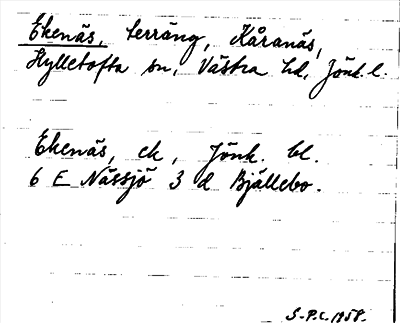 Ekenäs, terräng, Kåranäs,
Hylletofta sn, Västra hd, Jönk. l.
Ekenäs, ek, Jönk. bl.
6 E Nässjö 3 d Bjällebo.
S.P.C. 1958.